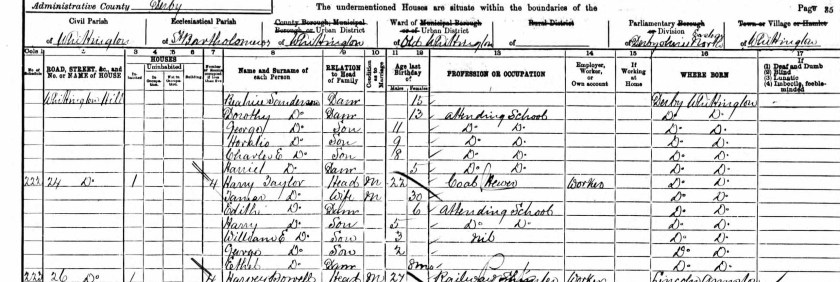 Administrative County Derby The undermentioned Houses are situate within the boundaries of the Page 35
Civil Parish Ecclesiastical Parish County Borough, Municipal Borough, or Urban District Ward of Municipal Borough or Urban District Rural District Parliamentary Borough or Division Town or Village or Hamlet
of Whittington of St Bartholomew of Whittington of Old Whittington of of Derby of Whittington
1 2 3 4 5 6 7 8 9 10 11 12 13 14 15 16 17
No. of Schedule ROAD, STREET, &c., and No. or NAME of HOUSE HOUSES Inhabited Uninhabited In Occupation Not in Occupation Building Name and Surname of each Person RELATION to Head of Family Condition as to Marriage Age last Birthday of Males Females PROFESSION OR OCCUPATION Employer, Worker, or Own account If Working at Home WHERE BORN (1) Deaf and Dumb (2) Blind (3) Lunatic (4) Imbecile, feeble-minded
Whittington Hill Beatrice Saunderson Daur 15 Derby Whittington
Dorothy Do Daur 13 attending School Do Do
George Do Son 11 Do Do Do Do
Horatio Do Son 9 Do Do Do Do
Charles E Do Son 8 Do Do Do Do
Harriet Do Daur 5 Do Do Do Do
222 24 Do 1 4 Harry Taylor Head M 22 Coal Hewer Worker Do Do
Do Wife M 30 Do Do
Edith Do Daur 6 attending School Do Do
Harry Do Son 5 Do Do Do Do
William E Do Son 3 nil Do Do
George Do Son 2 Do Do
Ethel Do Daur 8mo Do Do
223 26 Do 1 4 Harvey Head M 27 Railway Worker Lincoln